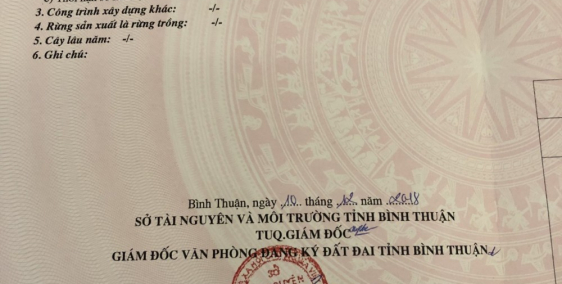 3. Công trình xây dựng khác: -/-
4. Rừng sản xuất là rừng trồng: -/-
5. Cây lâu năm: -/-
6. Ghi chú:
Bình Thuận, ngày 10 tháng 12 năm 2018
SỞ TÀI NGUYÊN VÀ MÔI TRƯỜNG TỈNH BÌNH THUẬN
TUQ.GIÁM ĐỐC
GIÁM ĐỐC VĂN PHÒNG ĐĂNG KÝ ĐẤT ĐAI TỈNH BÌNH THUẬN
SỞ